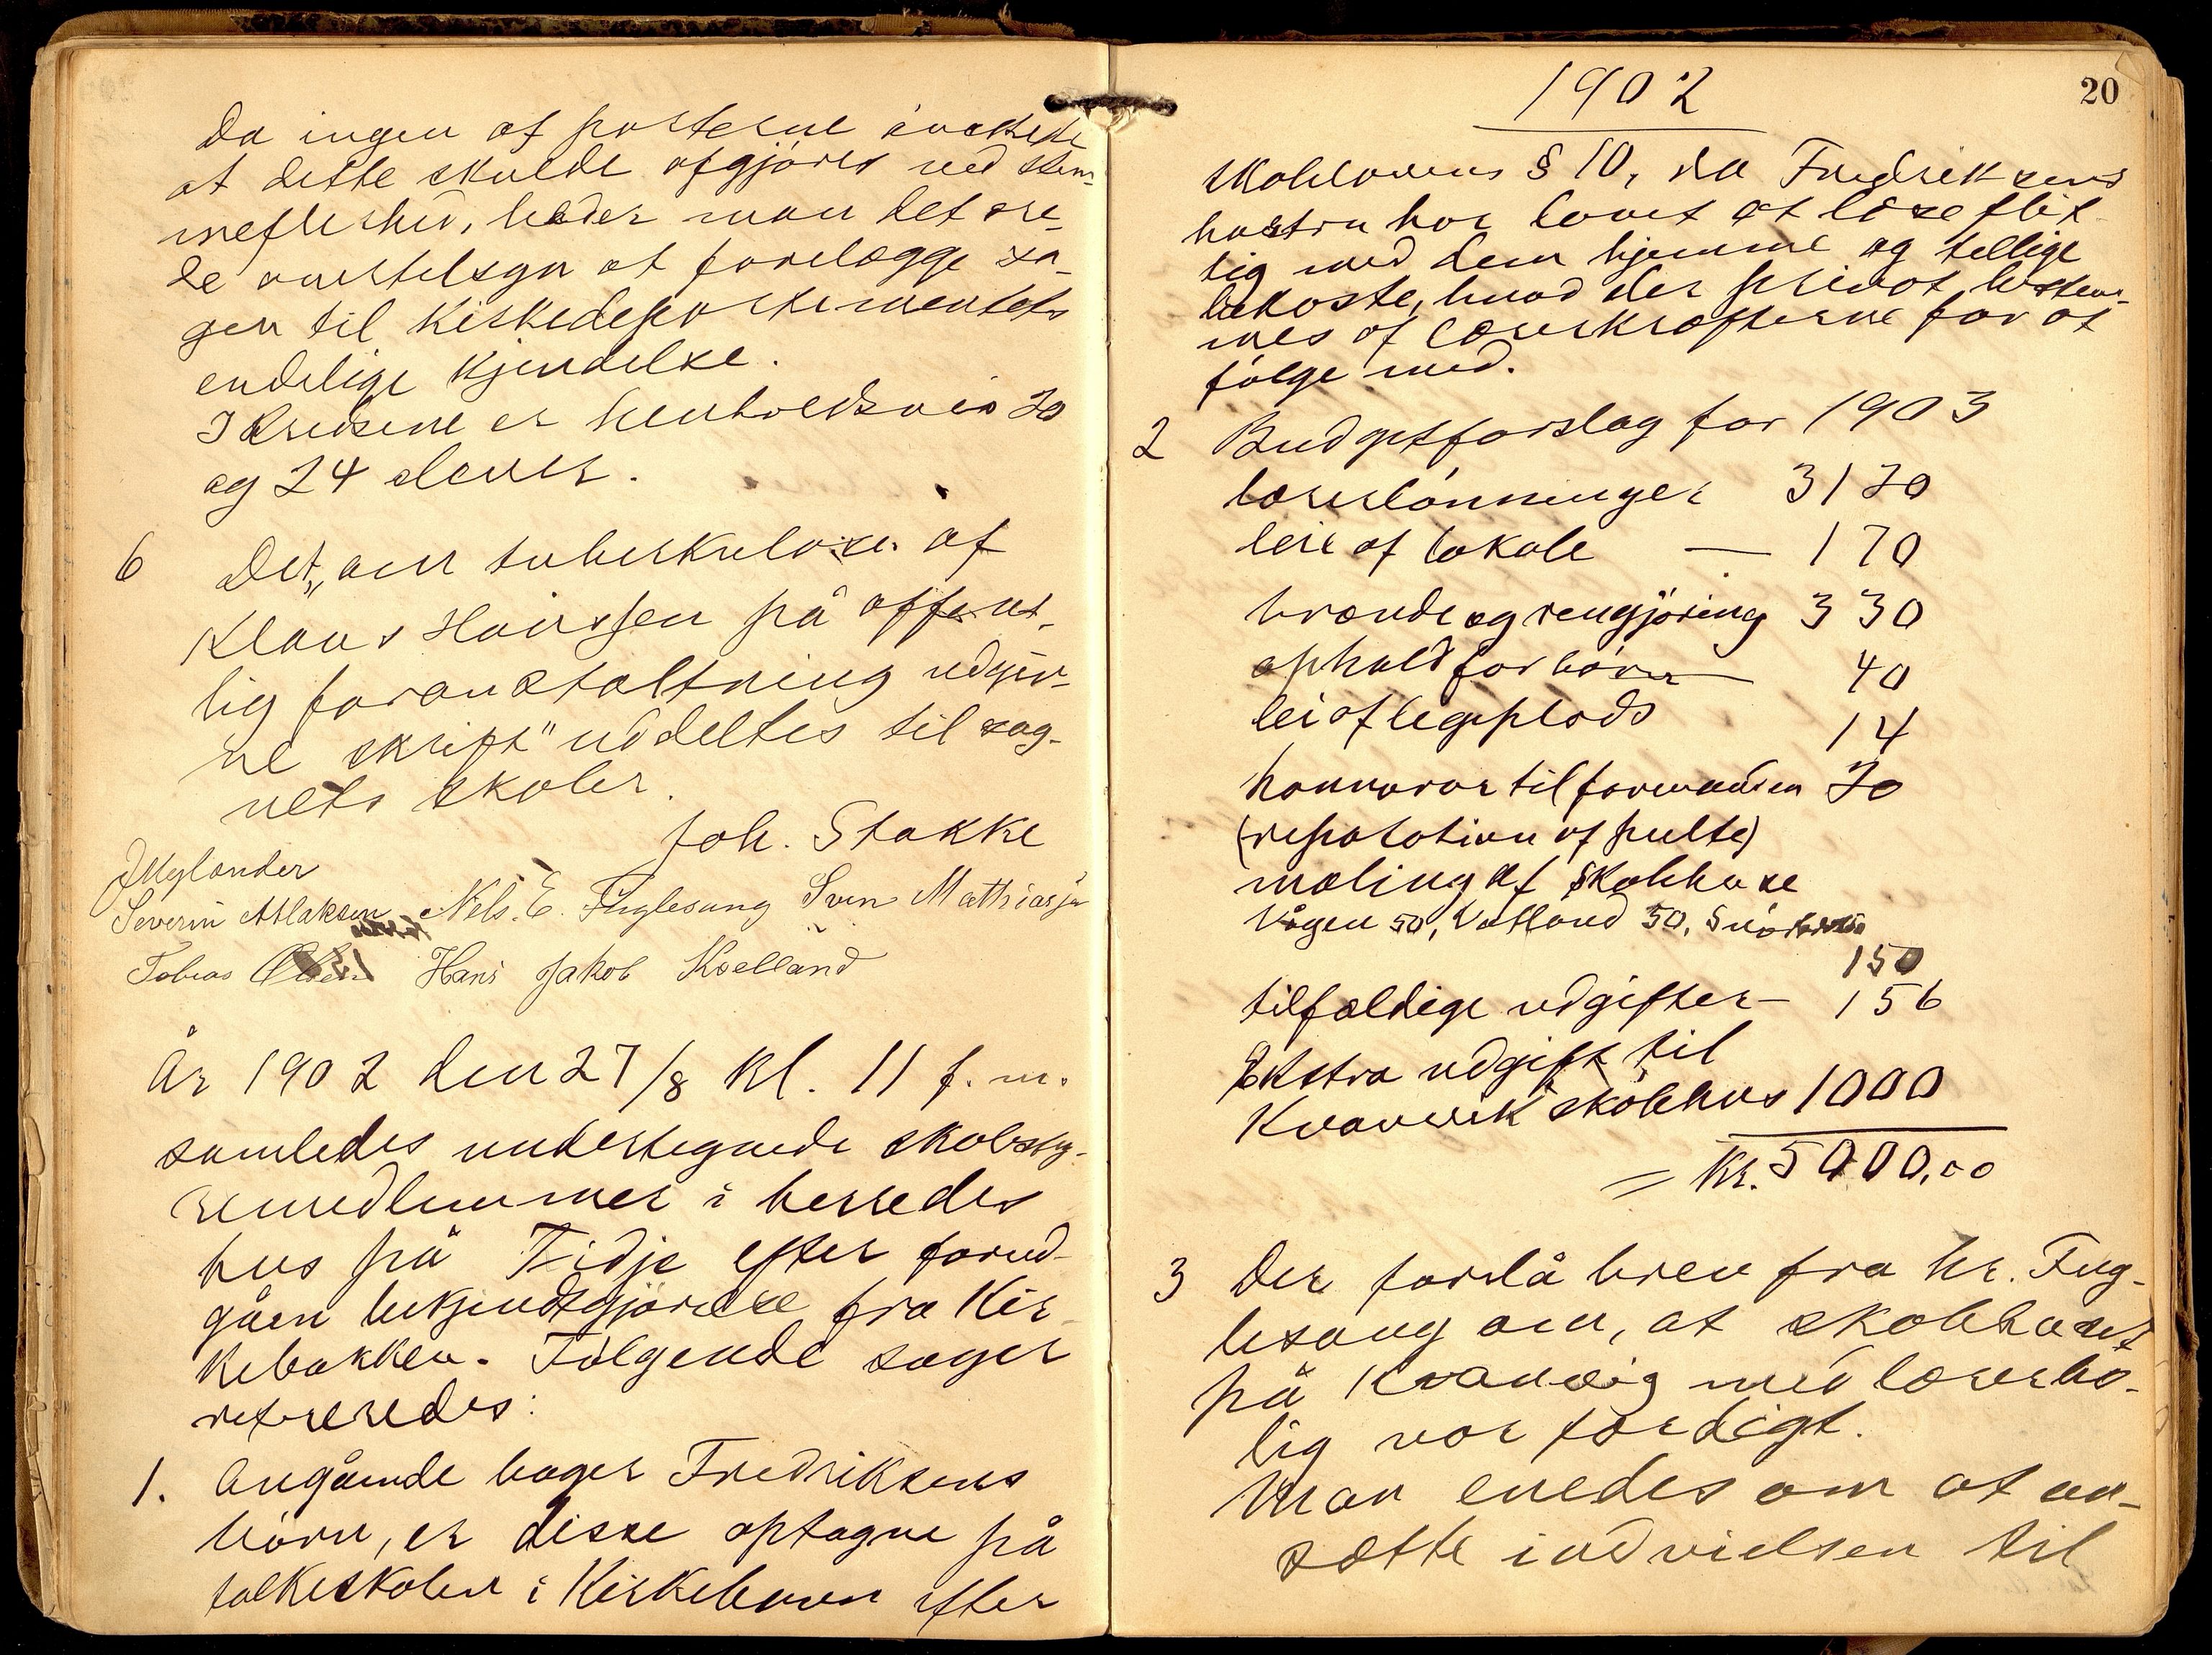 da ingen af parterne önskede
at dette skulde afgjöres ved stem-
mefleshed, holder man det ære-
de amtstilsyn at forelægge sa-
gen til Kirkedepartementets
endelige Kjendelse.
I Kredsene er henholdsvis 20
og 24 elever.
6 Det „om tuberkulose af
Klaus Hanssen på offent-
lig foranstaltning udgiv-
ne skrift" uddeltes til sog-
nets skoler.
Joh. Stakke
J Mylander
Severin Atlaksen Nels. E. Fuglesang Sven Mathiasen
Tobias Olsen Hans Jakob Kvelland
År 1902 den 27/8 Kl. 11 f.m.
samledes undertegnede skolesty-
remedlemmer i herreds
hus på Tidje efter forud-
gåen bekjendtgjörelse fra Kir-
kebakken. Fölgende sager
refereredes:
1. Angående bager Fredriksens
börn, er disse optagne på
folkeskolen i Kirkehavn efter
1902
20
skolelovens § 10, da Fredriksens
hustru har lovet at læse flit-
tig med dem hjemme og tillige
bekoste, hvad der privat bestem-
mes af lærerkræfterne for at
fölge med.
2 Budgetforslag for 1903
lærerlönninger 3120
leie af lokale — 170
brænde og rengjöring 330
ophold for börn — 40
lei af legeplads 14
honnorar til formanden 20
(reparation af pulte)
maling af skolehuse
Vågen 50, Vatland 50,
150
tilfældige udgifter — 156
Ekstra udgift til
Kvanvik skolehus 1000
= Kr. 5000,00
3 Der forelå brev fra hr. Fug-
lesang om, at skolehuset
på Kvanvig med lærerbo-
lig var færdigt.
Man enedes om at an-
sætte indvielsen til